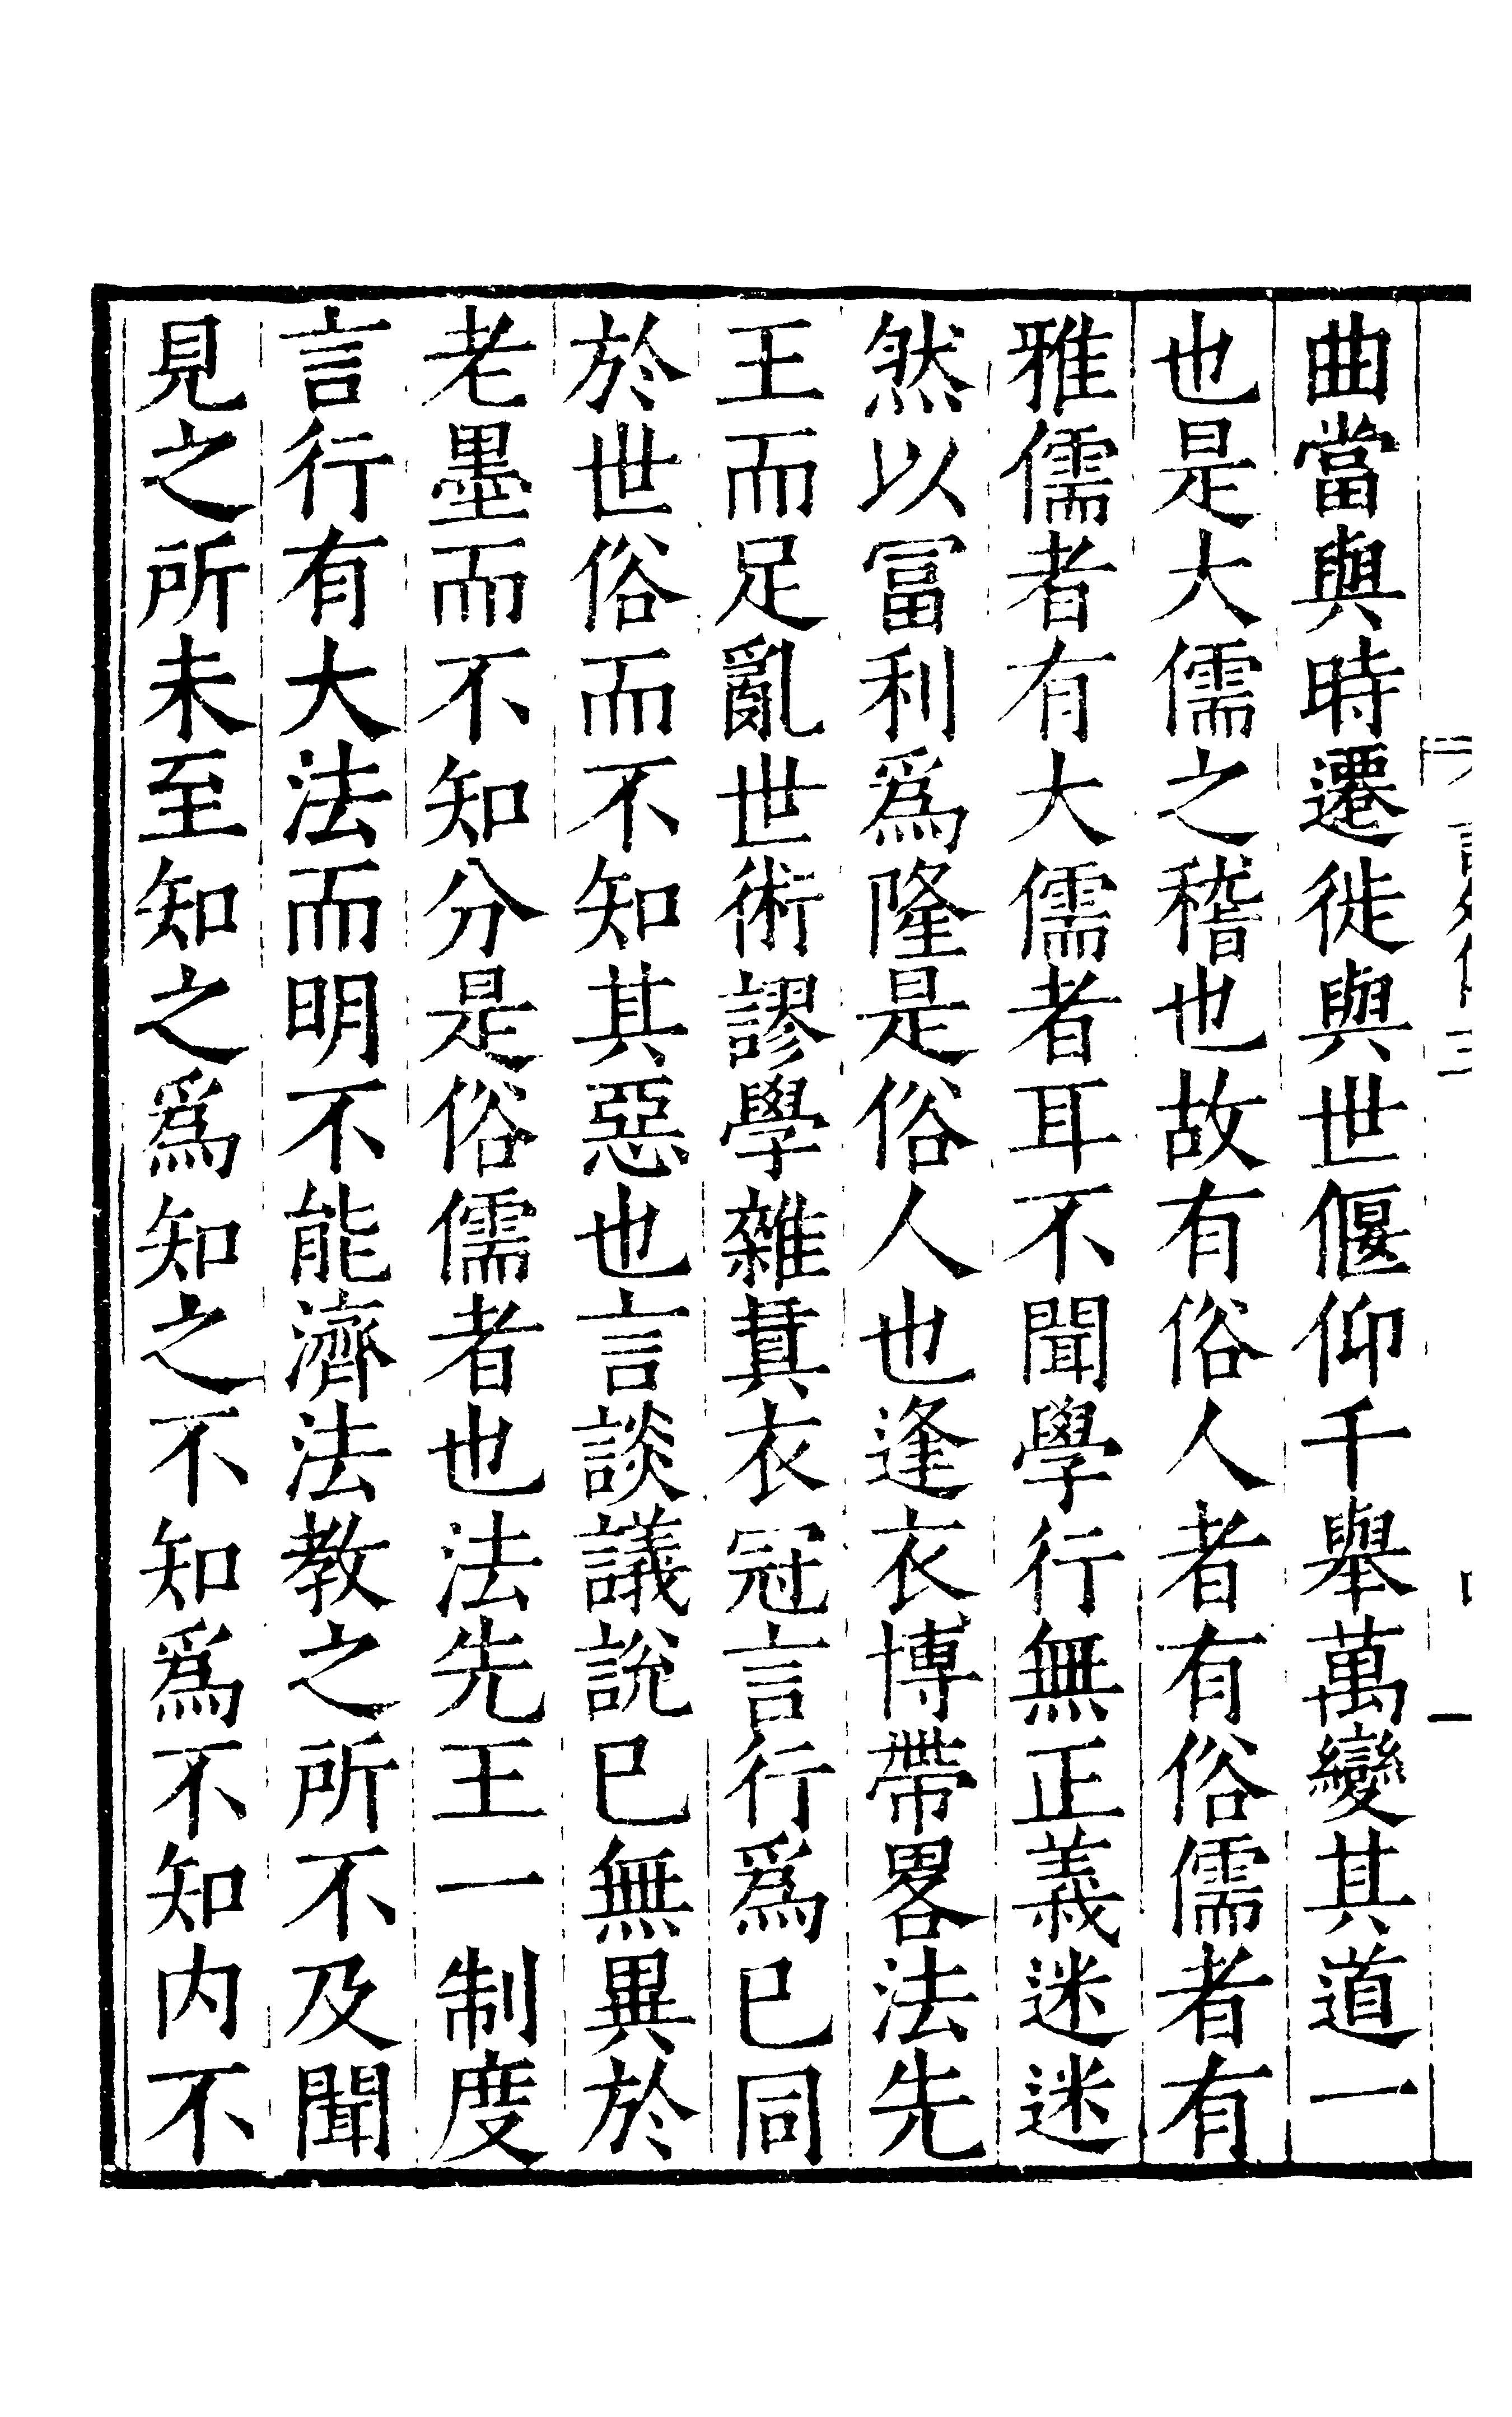 曲當與時遷徙與世偃仰千舉萬變其道一
也是大儒之稽也故有俗人者有俗儒者有
雅儒者有大儒者耳不聞學行無正義迷迷
然以冨利爲隆是俗人也逢衣博帶畧法先
王而足亂世術謬學雜其衣冠言行爲已同
於世俗而不知其惡也言談議說已無異於
老墨而不知分是俗儒者也法先王一制度
言行有大法而明不能濟法教之所不及聞
見之所未至知之爲知之不知爲不知内不